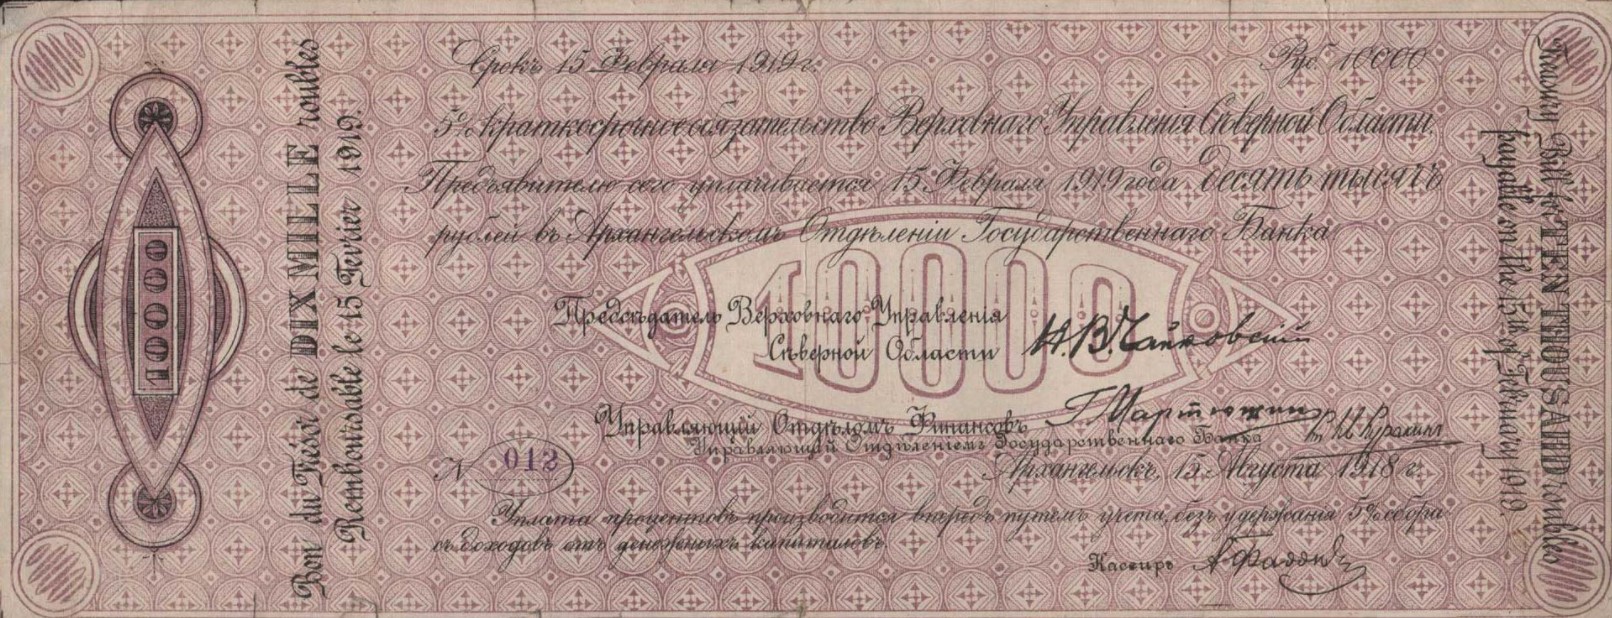 Срокъ 15 Февраля 1919 г.
Руб. 10000
5% краткосрочное обязательство Верховнаго Управленія Сѣверной Области.
Предъявителю сего уплачивается 15 Февраля 1919 года десять тысячъ
рублей въ Архангельскомъ Отдѣленіи Государственнаго Банка
10000
Предсѣдатель Верховнаго Управленія
Сѣверной Области
Н. В. Чайковскій
Управляющій Отдѣломъ Финансовъ
Управляющій Отдѣленіемъ Государственнаго Банка
Архангельскъ, 15 Августа 1918 г.
N 012
Уплата процентовъ производится впередъ путемъ учета, безъ удержанія 5% сбора
съ доходовъ отъ денежныхъ капиталовъ.
Кассиръ
10000
Bon du Trésor de DIX MILLE roubles
Remboursable le 15 Fevrier 1919.
Treasury Bill for TEN THOUSAND roubles
payable on the 15th of February 1919.